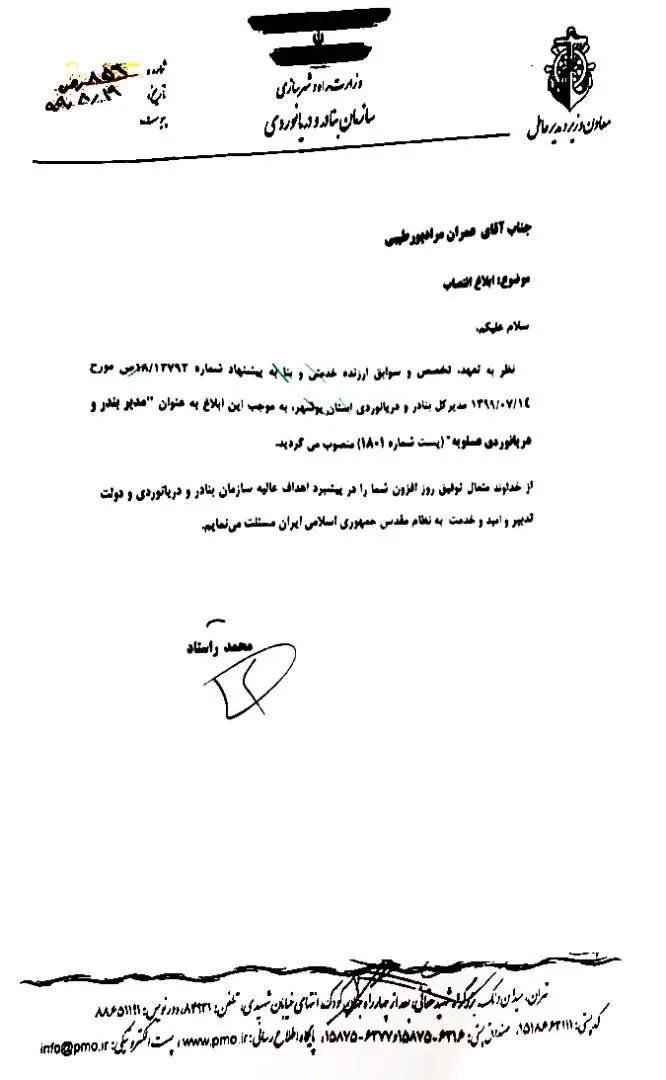 وزارت راه و شهرسازی
سازمان بنادر و دریانوردی
معاون وزیر و مدیر عامل
شماره:
تاریخ:
پیوست:
جناب آقای عمران مرادپور طیبی
موضوع: ابلاغ انتصاب
سلام علیکم،
نظر به تعهد، تخصص و سوابق ارزنده خدمتی و بنا به پیشنهاد شماره ۱۸/۱۲۷۹۳/ص مورخ
۱۳۹۹/۰۷/۱۴ مدیرکل بنادر و دریانوردی استان بوشهر، به موجب این ابلاغ به عنوان "مدیر بندر و
دریانوردی عسلویه" (پست شماره ۱۸۰۱) منصوب می گردید.
از خداوند متعال توفیق روز افزون شما را در پیشبرد اهداف عالیه سازمان بنادر و دریانوردی و دولت
تدبیر و امید و خدمت به نظام مقدس جمهوری اسلامی ایران مسئلت می‌نمایم.
محمد راستاد
تهران، میدان ونک، بزرگراه شهید حقانی، بعد از چهارراه جهان کودک، انتهای خیابان شهیدی، تلفن: ۸۴۹۳۱، دورنویس: ۸۸۶۵۱۱۹۱
کد پستی: ۱۵۱۸۶۶۳۱۱۱، صندوق پستی: ۶۳۱۶-۱۵۸۷۵ و ۶۳۷۷-۱۵۸۷۵، پایگاه اطلاع رسانی: www.pmo.ir، پست الکترونیکی: info@pmo.ir